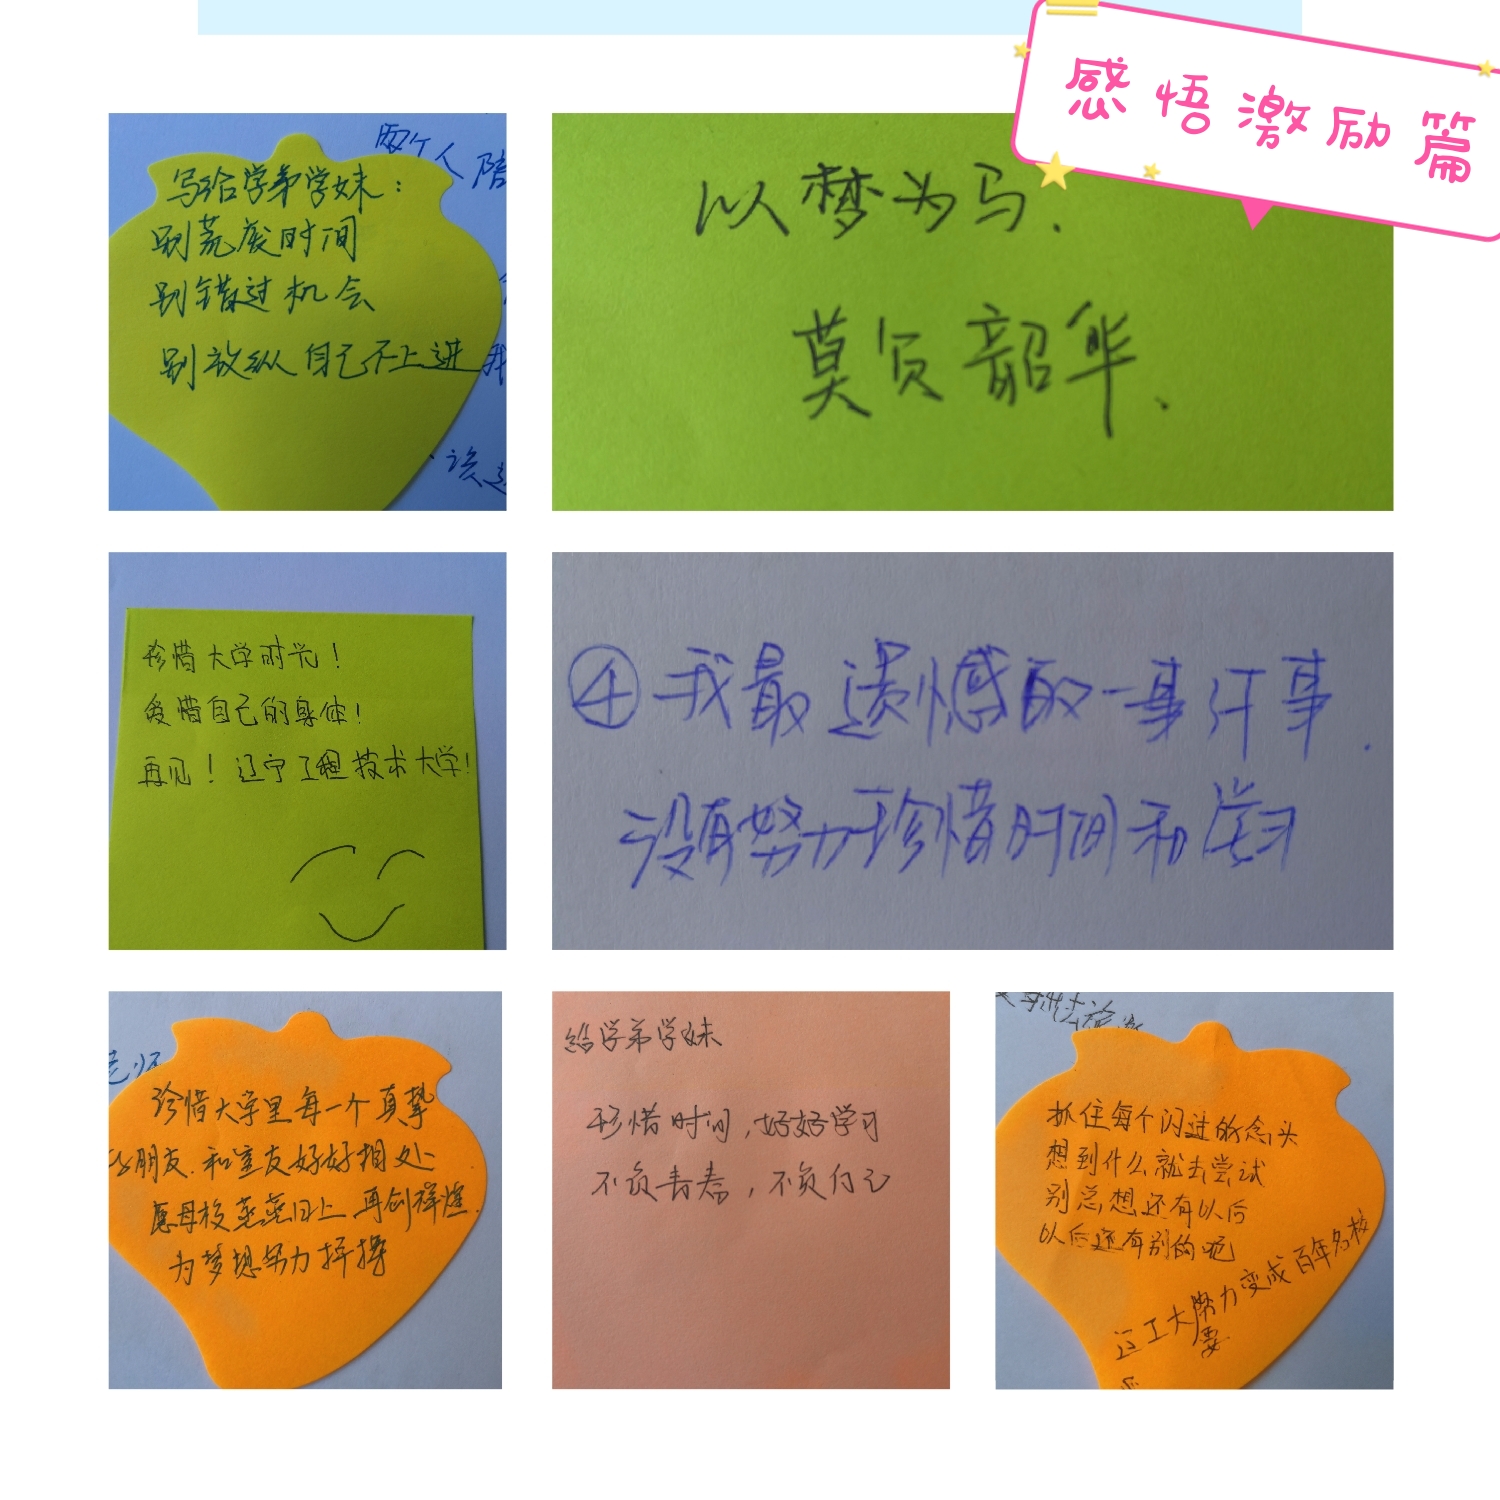 感悟激励篇
两个人陪
写给学弟学妹：
别荒废时间
别错过机会
别放纵自己不上进
我
谈
以梦为马.
莫负韶华.
珍惜大学时光！
爱惜自己的身体！
再见！辽宁工程技术大学！
④我最遗憾的一事件事.
没有努力珍惜时间和学习
老师
珍惜大学里每一个真挚
的朋友.和室友好好相处
愿母校蒸蒸日上再创辉煌.
为梦想努力拼搏
给学弟学妹
珍惜时间，好好学习
不负青春，不负自己
抓住每个闪过的念头
想到什么就去尝试
别总想还有以后
以后还有别的呢
辽工大要努力变成百年名校